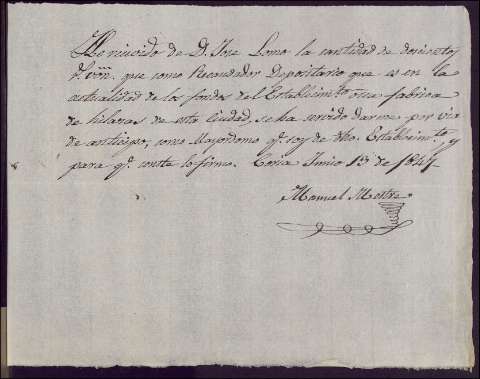 He recivido de D. Jose Lomo la cantidad de doscientos
r.s vn. que como Recaudador Depositario que es en la
actualidad de los fondos del Establecim.to fabrica
de hilazas de esta Ciudad, se ha servido darme por via
de anticipo, como Mayordomo q.e soy de dho. Establecim.to y
para q.e conste lo firmo. Coria Junio 13 de 1847
Manuel Mestre